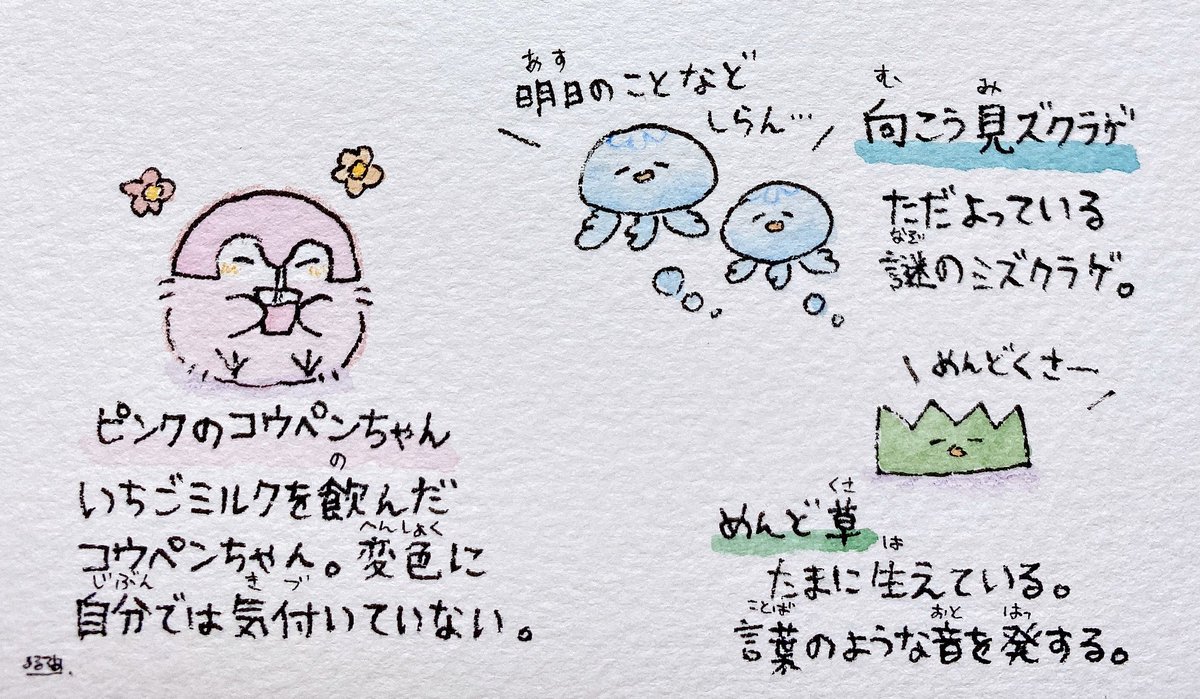 ピンクのコウペンちゃん
いちごミルクを飲んだ
の
コウペンちゃん。変色に
へんしょく
自分では気付いていない。
じぶん き づ
明日のことなど
あす
しらん…
向こう見ズクラゲ
む み
ただよっている
謎のミズクラゲ。
なぞ
めんどくさー
めんど草
くさ
たまに生えている。
は
言葉のような音を発する。
ことば おと はっ
るるてあ